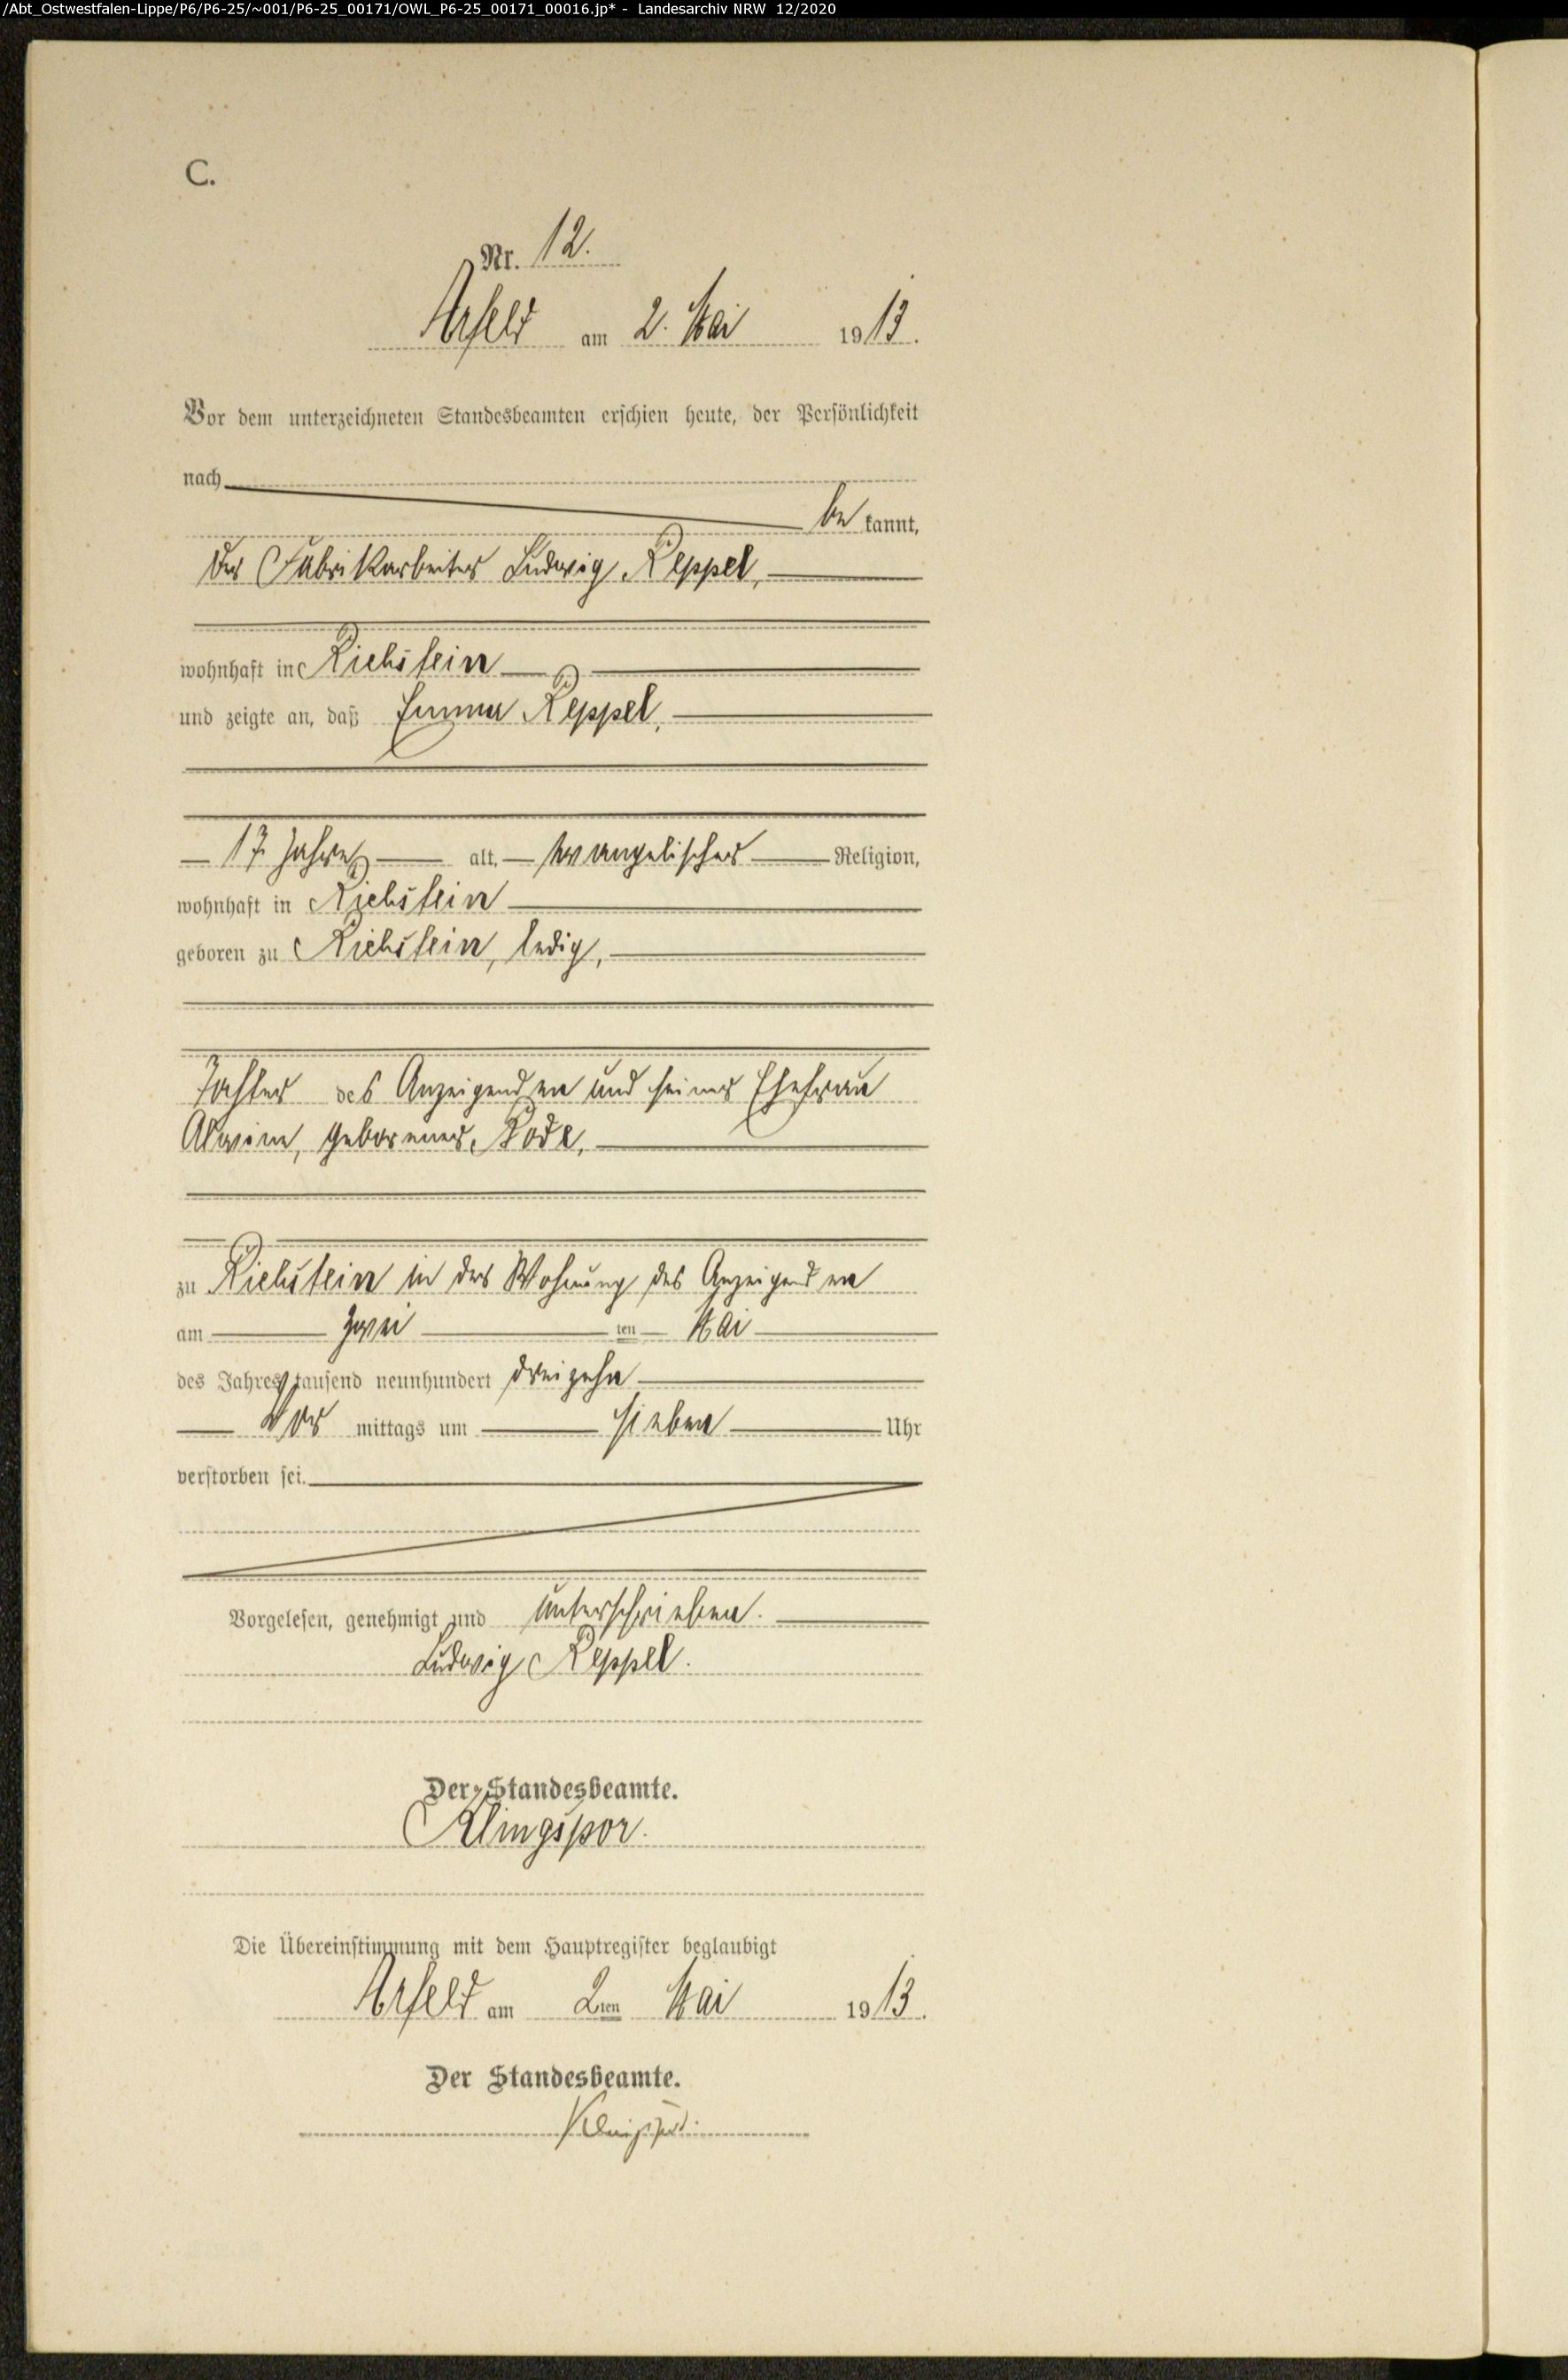 /Abt_Ostwestfalen-Lippe/P6/P6-25/~001/P6-25_00171/OWL_P6-25_00171_00016.jp* - Landesarchiv NRW 12/2020
C.
Nr. 12.
Arfeld am 2. Mai 1913.
Vor dem unterzeichneten Standesbeamten erschien heute, der Persönlichkeit
nach
be kannt,
der Fabrikarbeiter Ludwig Keppel,
wohnhaft in Richstein
und zeigte an, daß Emma Keppel,
17 Jahre alt, evangelischer Religion,
wohnhaft in Richstein
geboren zu Richstein, ledig,
Tochter des Anzeigenden und seiner Ehefrau
Alwine, geborener
zu Richstein in der Wohnung des Anzeigenden
am zwei ten Mai
des Jahres tausend neunhundert dreizehn
vor mittags um sieben Uhr
verstorben sei.
Vorgelesen, genehmigt und unterschrieben.
Ludwig Keppel.
Der Standesbeamte.
Klingspor.
Die Übereinstimmung mit dem Hauptregister beglaubigt
Arfeld am 2ten Mai 1913.
Der Standesbeamte.
Klingspor.